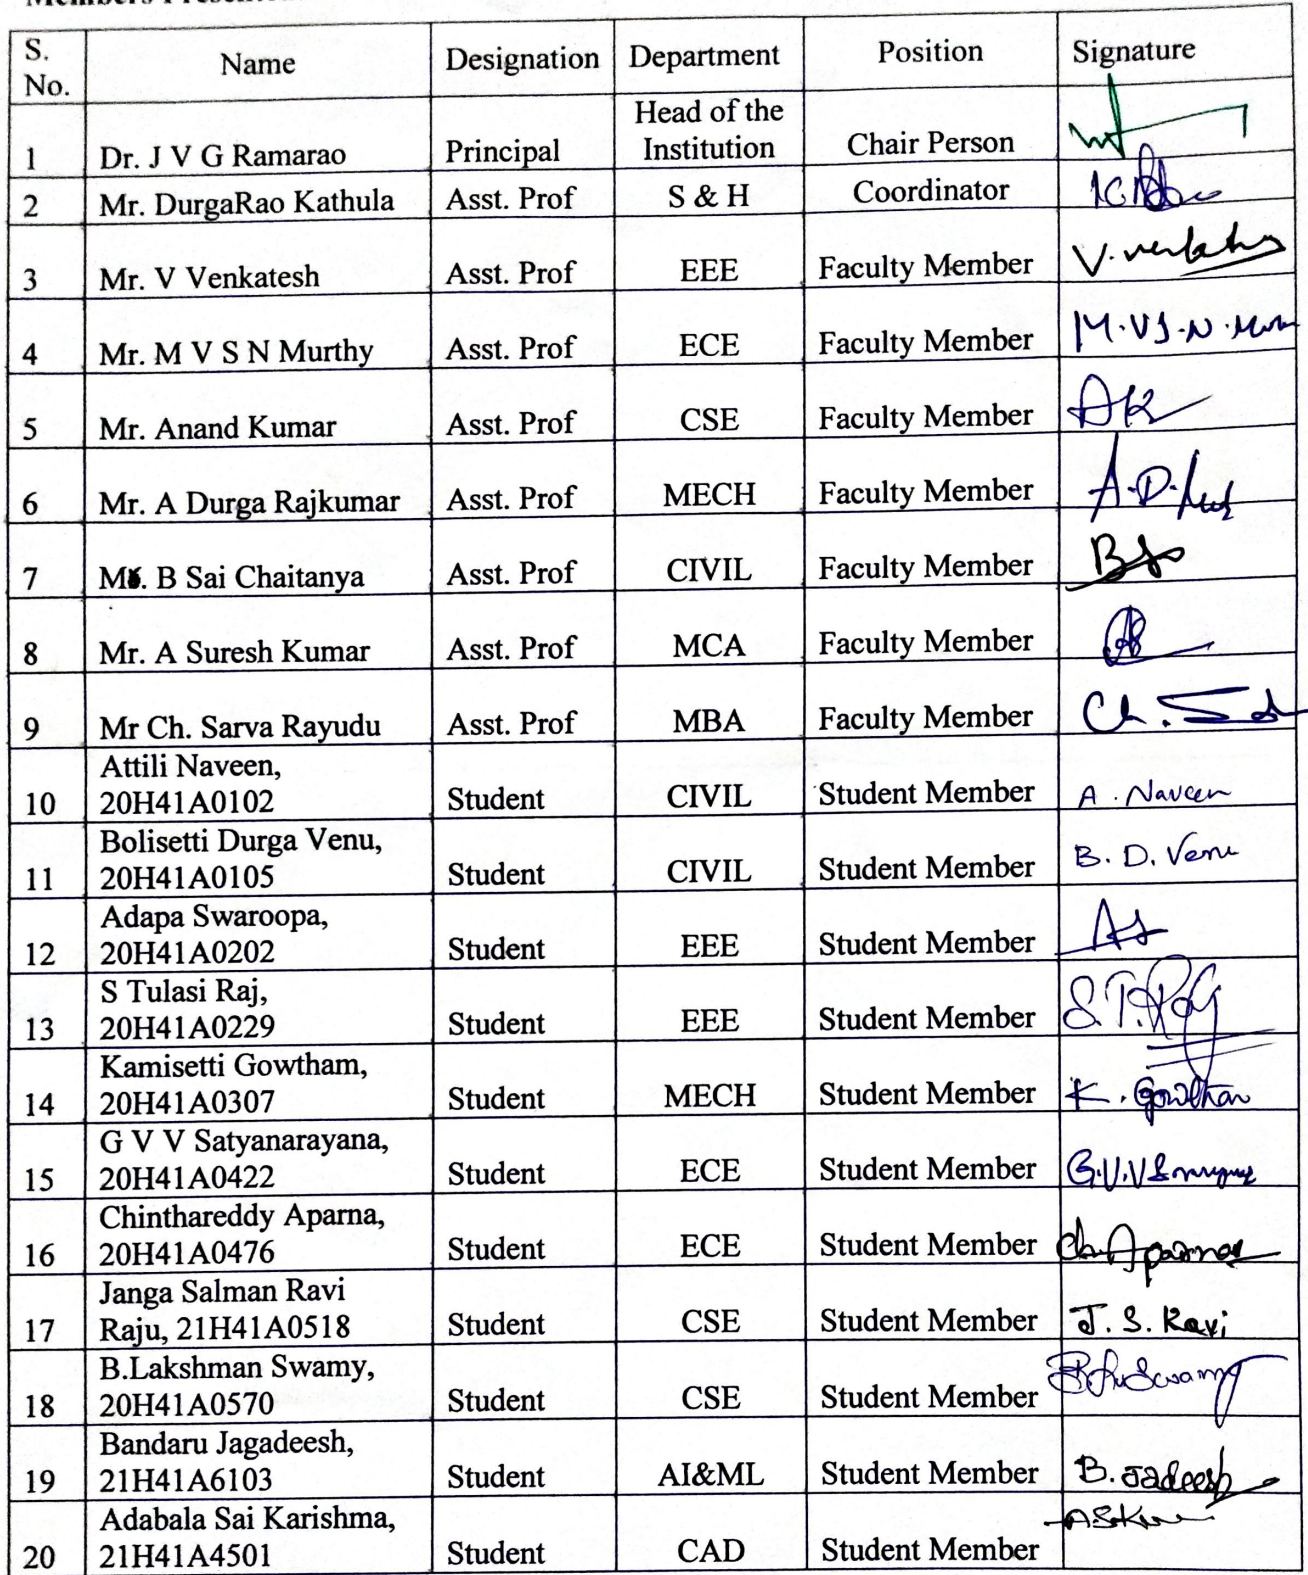 S. No. Name Designation Department Position Signature
1 Dr. J V G Ramarao Principal Head of the Institution Chair Person
2 Mr. DurgaRao Kathula Asst. Prof S & H Coordinator
3 Mr. V Venkatesh Asst. Prof EEE Faculty Member V. Venkatesh
4 Mr. M V S N Murthy Asst. Prof ECE Faculty Member M.V.S.N.
5 Mr. Anand Kumar Asst. Prof CSE Faculty Member AK
6 Mr. A Durga Rajkumar Asst. Prof MECH Faculty Member A.D.
7 B Sai Chaitanya Asst. Prof CIVIL Faculty Member
8 Mr. A Suresh Kumar Asst. Prof MCA Faculty Member
9 Mr Ch. Sarva Rayudu Asst. Prof MBA Faculty Member Ch.
10 Attili Naveen, 20H41A0102 Student CIVIL Student Member A. Naveen
11 Bolisetti Durga Venu, 20H41A0105 Student CIVIL Student Member B. D. Venu
12 Adapa Swaroopa, 20H41A0202 Student EEE Student Member AS
13 S Tulasi Raj, 20H41A0229 Student EEE Student Member S.T. Raj
14 Kamisetti Gowtham, 20H41A0307 Student MECH Student Member K. Gowtham
15 G V V Satyanarayana, 20H41A0422 Student ECE Student Member G.V.V
16 Chinthareddy Aparna, 20H41A0476 Student ECE Student Member Ch. Aparna
17 Janga Salman Ravi Raju, 21H41A0518 Student CSE Student Member J. S. Ravi
18 B.Lakshman Swamy, 20H41A0570 Student CSE Student Member Swamy
19 Bandaru Jagadeesh, 21H41A6103 Student AI&ML Student Member B. Jadeesh
20 Adabala Sai Karishma, 21H41A4501 Student CAD Student Member